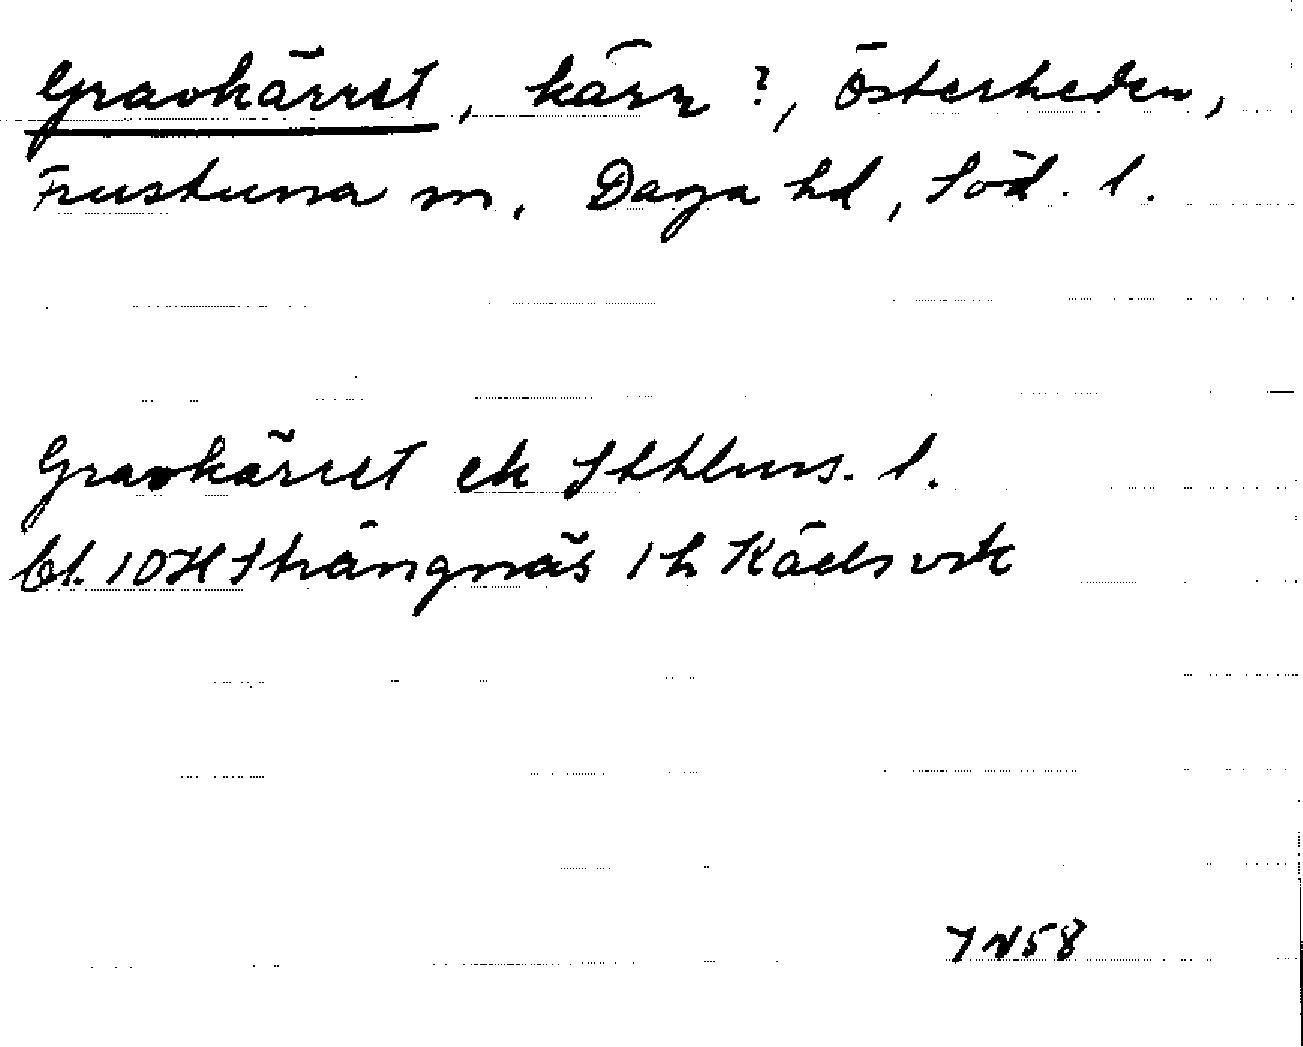 Gravkärret, kärr ?, Österheden,
Frustuna sn, Daga hd, Söd. l.
Gravkärret ek Sthlms. l.
bl. 10H Strängnäs 1 h